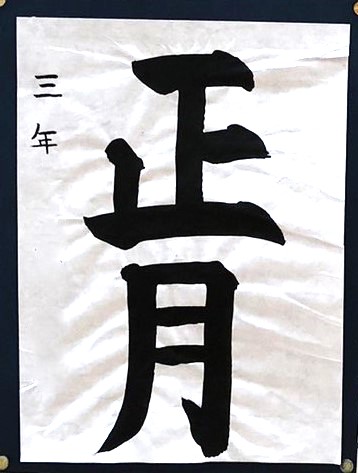 正月
三年